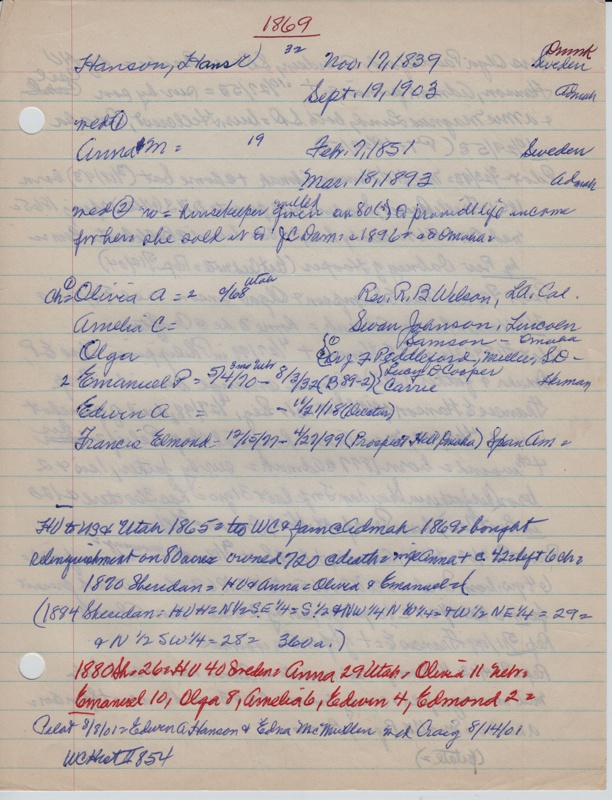 1869
Hanson, Hans 32 Nov. 17, 1839 Sweden
Sept. 19, 1903 Admah
med ①
Anna M = 19 Feb. 7, 1851 Sweden
Mar. 18, 1893 Admah
med ② no = housekeeper willed given an 80 (4) @ provide life income
for hers she sold it @ J C Dam = 1896 = Omaha =
ch = Olivia A = 2 9/68 Utah Rev. R. B Wilson, LA. Cal.
Amelia C = Swan Johnson, Lincoln
Olga Ramson - Omaha
Peddleford, Miller, S.D -
2 Emanuel P = 5/4/70 - 8/3/32 (B 89-2) Cooper
Carrie Herman
Edwin A = - 11/21/18
Francis Elmond - 12/15/77 - 4/27/99 (Prospect Hill, Omaha) Span Am =
HV to US & Utah 1865 = to WC & Admah 1869 = bought
relinquishment on 80 acres owned 720 @ death = Anna + c. 42 = left 6 ch =
1870 Sheridan = HV & Anna = Olivia & Emanuel =
(1884 Sheridan = HVH = N½ S.E¼ = S.½ & NW¼ NW¼ = + W½ NE¼ = 29 =
& N ½ SW¼ = 28 = 360a.)
1880 Sh = 26 = HV 40 Sweden = Anna 29 Utah, Olivia 11 Nebr =
Emanuel 10, Olga 8, Amelia 6, Edwin 4, Edmond 2 =
Pilot 8/8/01 = Edwin A Hanson & Edna McMullen Craig 8/14/01
WC Hist II 854